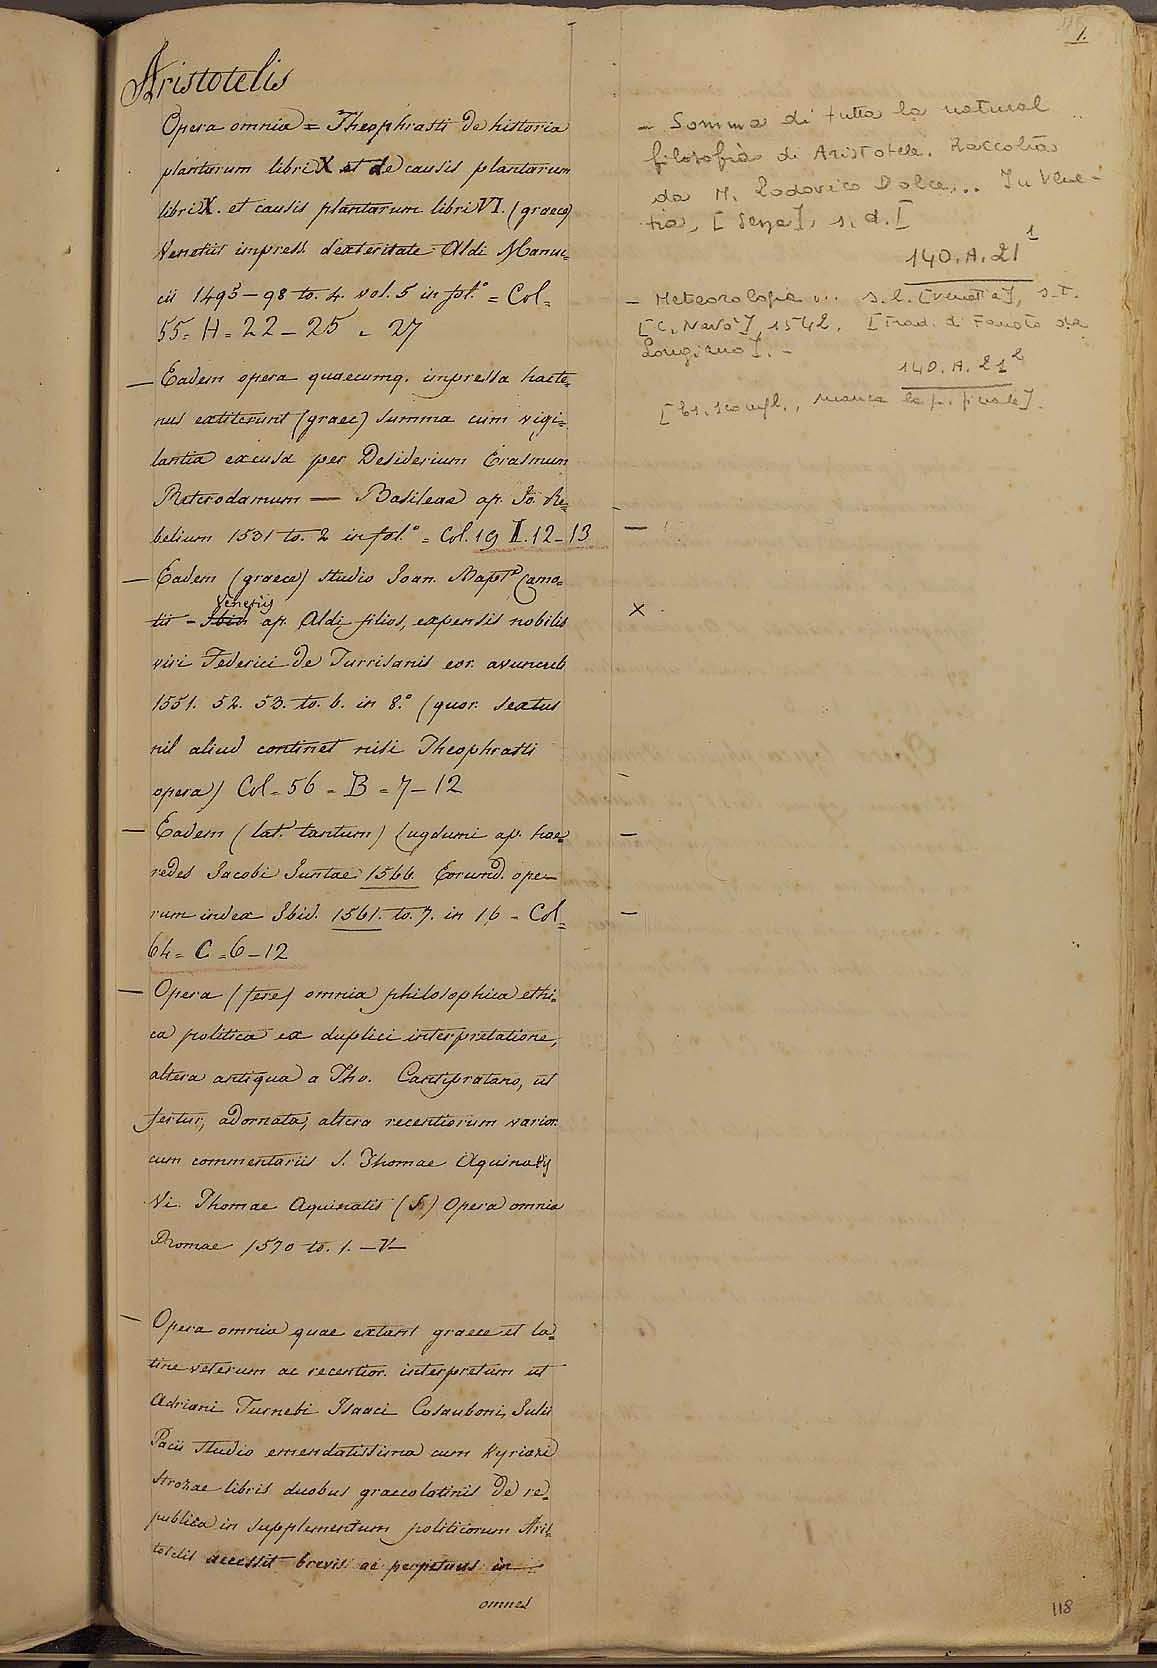 1.
Aristotelis
Opera omnia = Theophrasti De historia
plantarum libri X et de causis plantarum
libri X. et causis plantarum libri VI. (graece)
Venetiis impress. dexteritate Aldi Manu=
cii 1495 – 98 to. 4. vol. 5 in fol.° = Col=
55 = H = 22 – 25 – 27
— Eadem opera quaecumq. impressa hacte=
nus extiterunt (graec) summa cum vigi=
lantia excusa per Desiderium Erasmum
Roterodamum — Basileae ap. Jo. Be=
belium 1531 to. 2 in fol.° = Col. 19 I. 12 – 13
— Eadem (graece) studio Joan. Bapt.ª Camo=
Venetiis
tii – Ibid ap. Aldi filios, expensis nobilis
viri Federici de Turrisanis eor. avunculi
1551. 52. 53. to. 6. in 8.° (quor. sextus
nil aliud continet nisi Theophrasti
opera) Col = 56 = B = 7 – 12
— Eadem (lat. tantum) Lugduni ap. hae=
redes Jacobi Juntae 1566 Eorund. ope=
rum index Ibid. 1561. to. 7. in 16 = Col=
64 = C = 6 – 12
— Opera (fere) omnia philosophica ethi=
ca politica ex duplici interpretatione,
altera antiqua a Tho. Cantipratano, ut
fertur, adornata, altera recentiorum varior.
cum commentariis S. Thomae Aquinatis
Vi. Thomae Aquinatis (S.) Opera omnia
Romae 1570 to. 1. – V –
— Opera omnia quae extant graece et la=
tine veterum ac recentior. interpretum ut
Adriani Turnebi Isaaci Casauboni, Julii
Pacii studio emendatissima cum Kyriaci
Strozae libris duobus graecolatinis De re=
publica in supplementum politicorum Aris=
totelis accessit brevis ac perpetuus in
omnes
– Somma di tutta la natural
filosofia di Aristotele. Raccolta
da M. Lodovico Dolce... In Vene-
tia, [Sessa], s. d. [
140.A.21 1
– Meteorologia ... s. l. [Venetia], s. t.
[C. Navò], 1542. [Trad. di Fausto da
Longiano]. –
140.A.21 2
[Es. scompl., manca la p. finale].
118